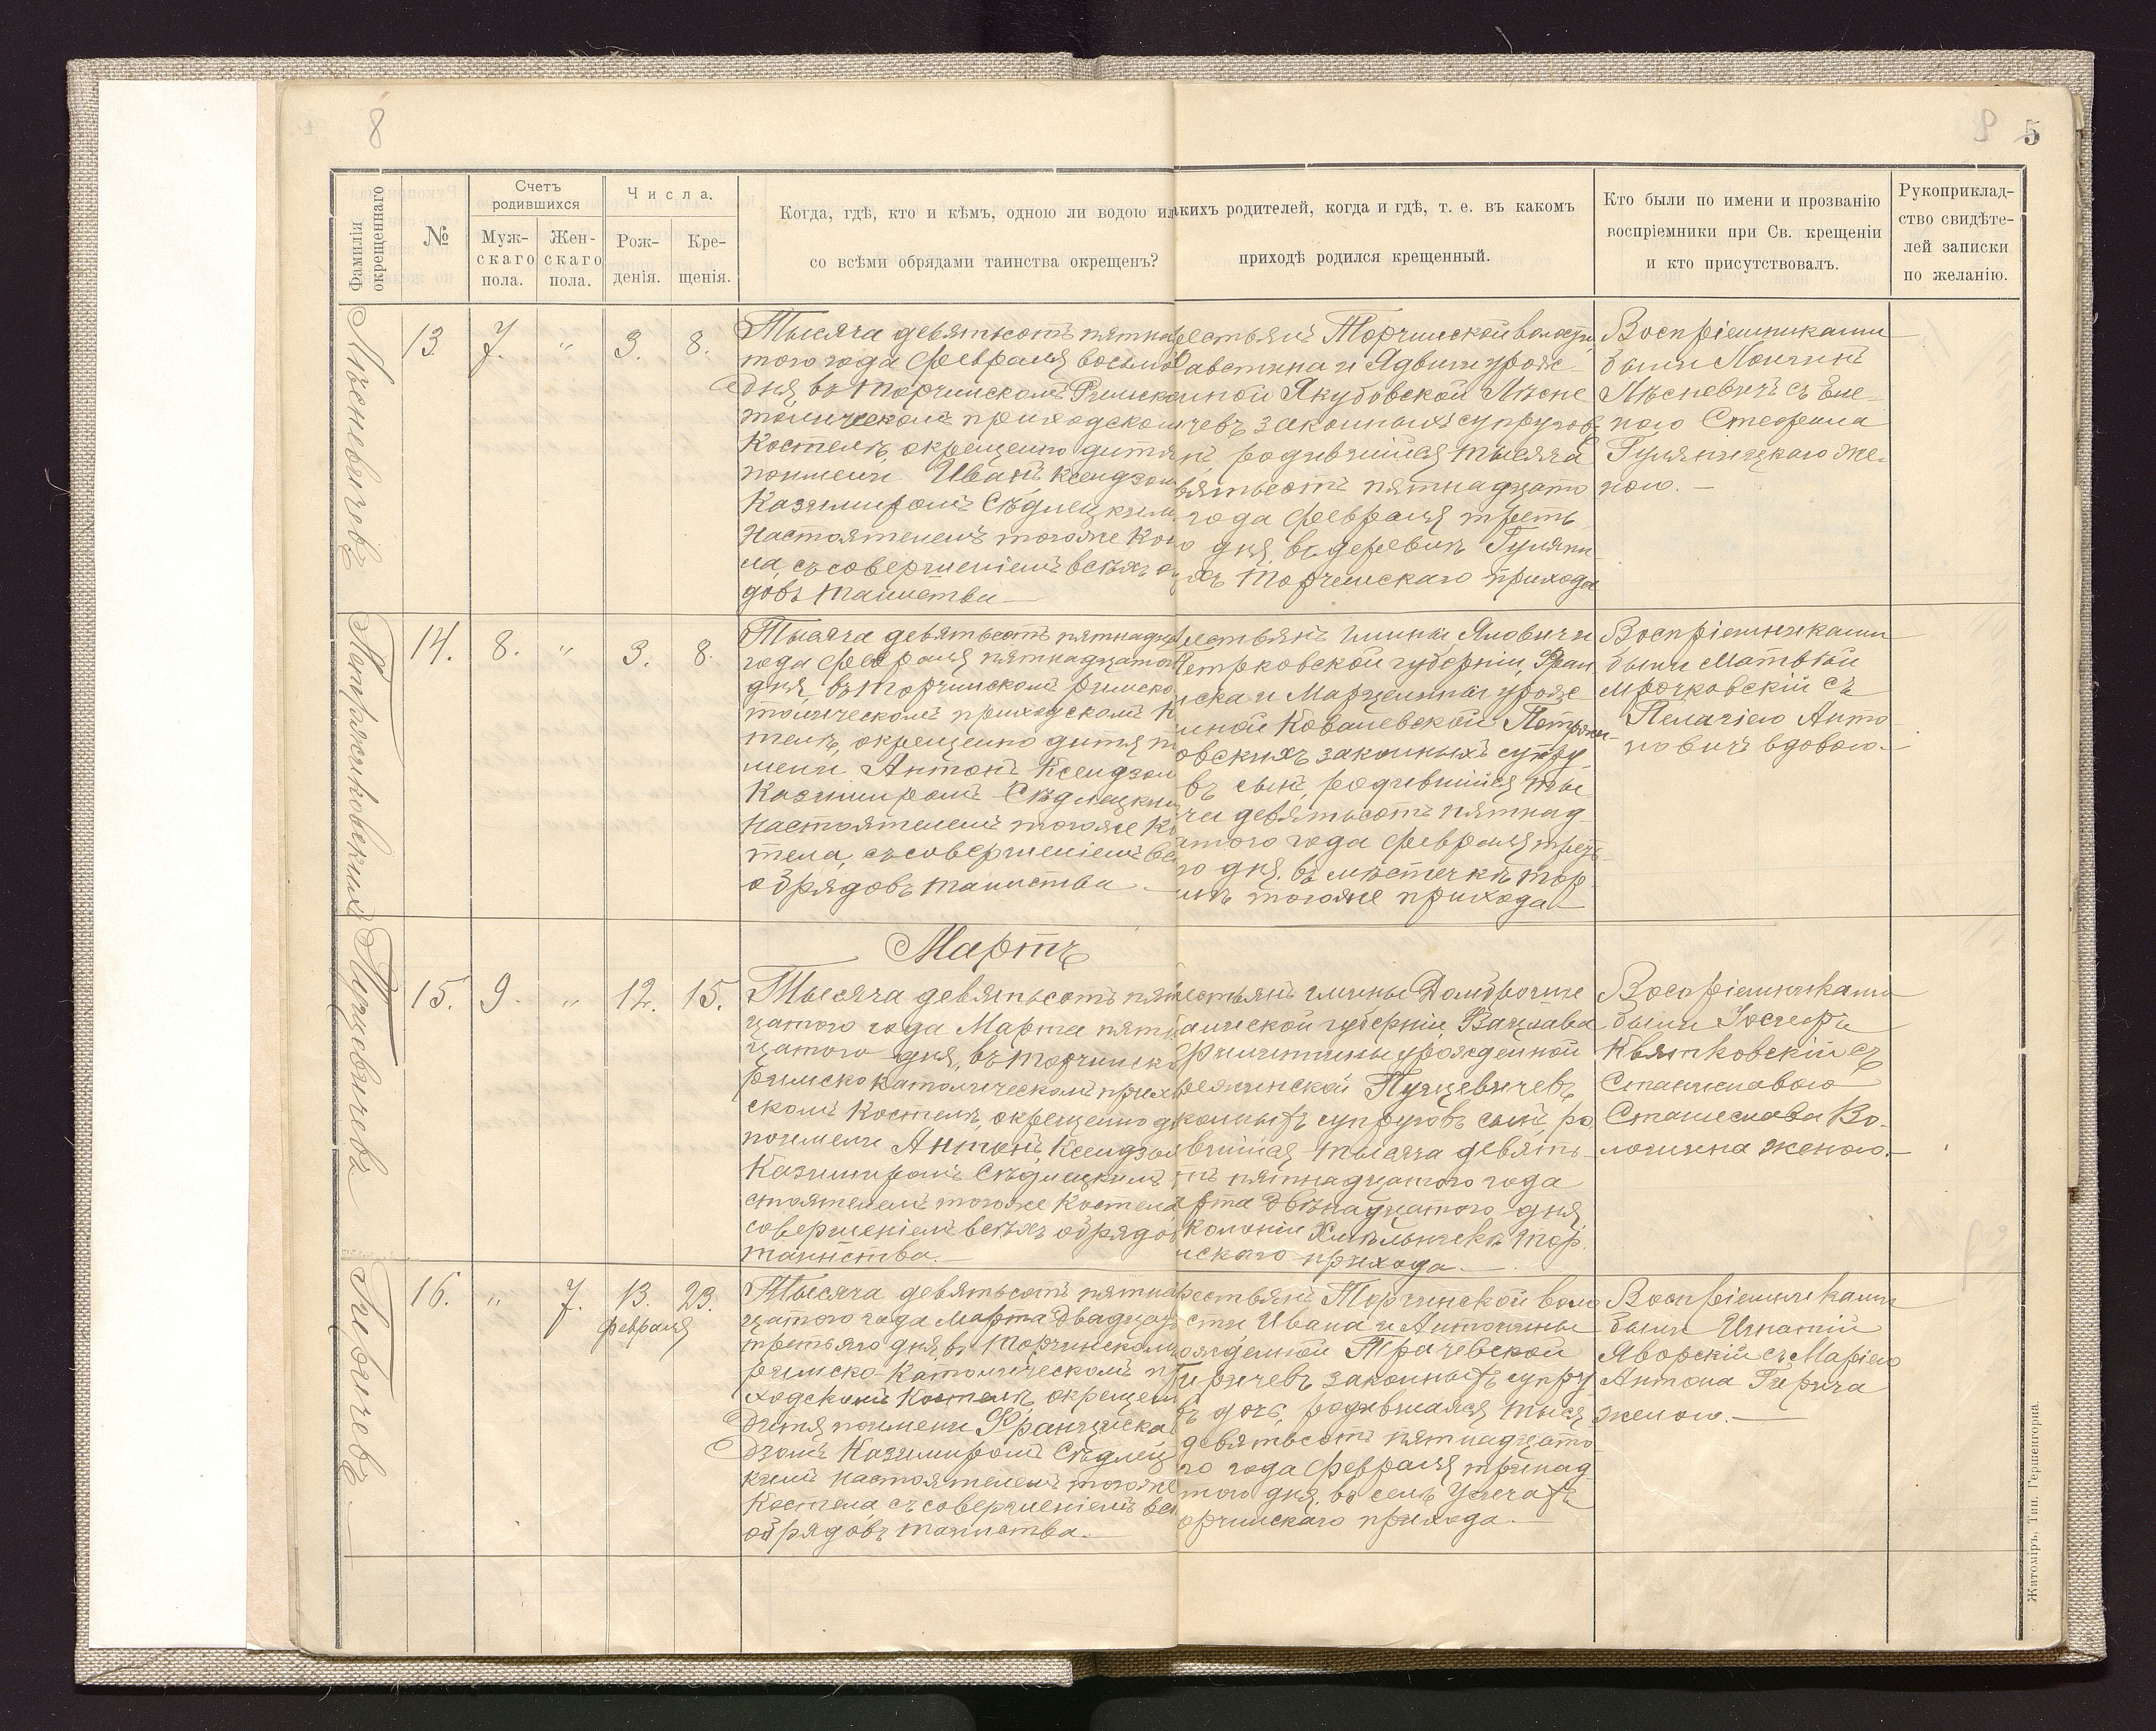 8
5
Фамилія окрещеннаго
№
Счетъ родившихся
Муж-
скаго
пола.
Жен-
скаго
пола.
Числа.
Рож-
денія.
Кре-
щенія.
Когда, гдѣ, кто и кѣмъ, одною ли водою ил
со всѣми обрядами таинства окрещенъ?
акихъ родителей, когда и гдѣ, т. е. въ какомъ
приходѣ родился крещенный.
Кто были по имени и прозванію
воспріемники при Св. крещеніи
и кто присутствовалъ.
Рукоприклад-
ство свидѣте-
лей записки
по желанію.
Лѣсневичевъ
13. 7. " 3. 8.
Тысяча девятьсотъ пятнад
того года Февраля восьмо
дня, въ Торчинскомъ Римско
толическомъ приходском
Костелѣ, окрещено дитя
поимени Иванъ Ксендзом
Казимиромъ Сѣдлецким
Настоятелемъ тогоже Кос
ла съ совершеніемъ всѣхъ о
довъ таинства
рестьянъ Торчинской волости
австина и Ядвиги урож
нной Якубовской Лѣсне
чевъ законныхъ супругов
нъ, родившійся тысяча
вятьсотъ пятнадцато
года Февраля треть
о дня, въ деревнѣ Гуляни
хъ Торчинскаго прихода
Воспріемниками
были Лонгинъ
Лѣсневичъ съ Еле-
ною Стефана
Гуляницкаго же-
ною.
Петржиковскихъ
14. 8. " 3. 8.
Тысяча девятьсотъ пятнадц
года Февраля пятнадцатог
дня, въ Торчинскомъ Римско
толическомъ приходскомъ К
телѣ, окрещено дитя п
мени Антонъ Ксендзом
Казимиромъ Сѣдлецким
Настоятелемъ тогоже Ко
тела, съ совершеніемъ вс
обрядовъ таинства
рестьянъ гмины Яловичи
етрковской губерніи, Фран
иска и Марцеліины урож
нной Ковалевской Петржи-
овскихъ законныхъ супру
въ сынъ, родившійся ты
ча девятьсотъ пятнад
атого года Февраля треть
го дня, въ мѣстечкѣ Тор
инѣ тогоже прихода
Воспріемниками
были Матвѣй
Мрочковскій съ
Пелагіею Анто-
новичъ вдовою.
Мартъ
Пуцевичевъ
15. 9. " 12. 15.
Тысяча девятьсотъ пят
цатого года Марта пятн
цатого дня, въ Торчинск
римско католическомъ прих
скомъ Костелѣ, окрещено д
поимени Антонъ, Ксендзом
Казимиромъ Сѣдлецкимъ
стоятелемъ тогоже Костела
совершеніемъ всѣхъ обрядо
таинства.
естьянъ гмины
губерніи Вацлава
урожденной
Пуцевичевъ
конныхъ супруговъ сынъ, ро
вшійся тысяча девять-
тъ пятнадцатого года
арта двѣнадцатого дня
колоніи Хмѣльникъ Тор
нскаго прихода.
Воспріемниками
были Іосифъ
Квятковскій съ
Станиславою
Станислава Во-
женою.
Гиричевъ
16. " 7. 13. 23.
февраля
Тысяча девятьсотъ пятна
цатого года Марта двадцат
третьяго дня, въ Торчинском
римско-католическомъ п
ходскомъ Костелѣ, окрещен
дитя поимени Францишка
дзомъ Казимиромъ Сѣдлец
кимъ настоятелемъ тогоже
Костела съ совершеніемъ всѣ
обрядовъ таинства.
рестьянъ Торчинской воло
сти Ивана и Антонины
ожденной Трачевской
Гиричевъ законныхъ супру
въ дочь, родившаяся тыся
девятьсотъ пятнадцато
го года Февраля тринад
того дня, въ селѣ
орчинскаго прихода.
Воспріемниками
были Игнатій
Яворскій съ Маріею
Антона Гирича
женою.
Житоміръ, Тип. Гершенгорна